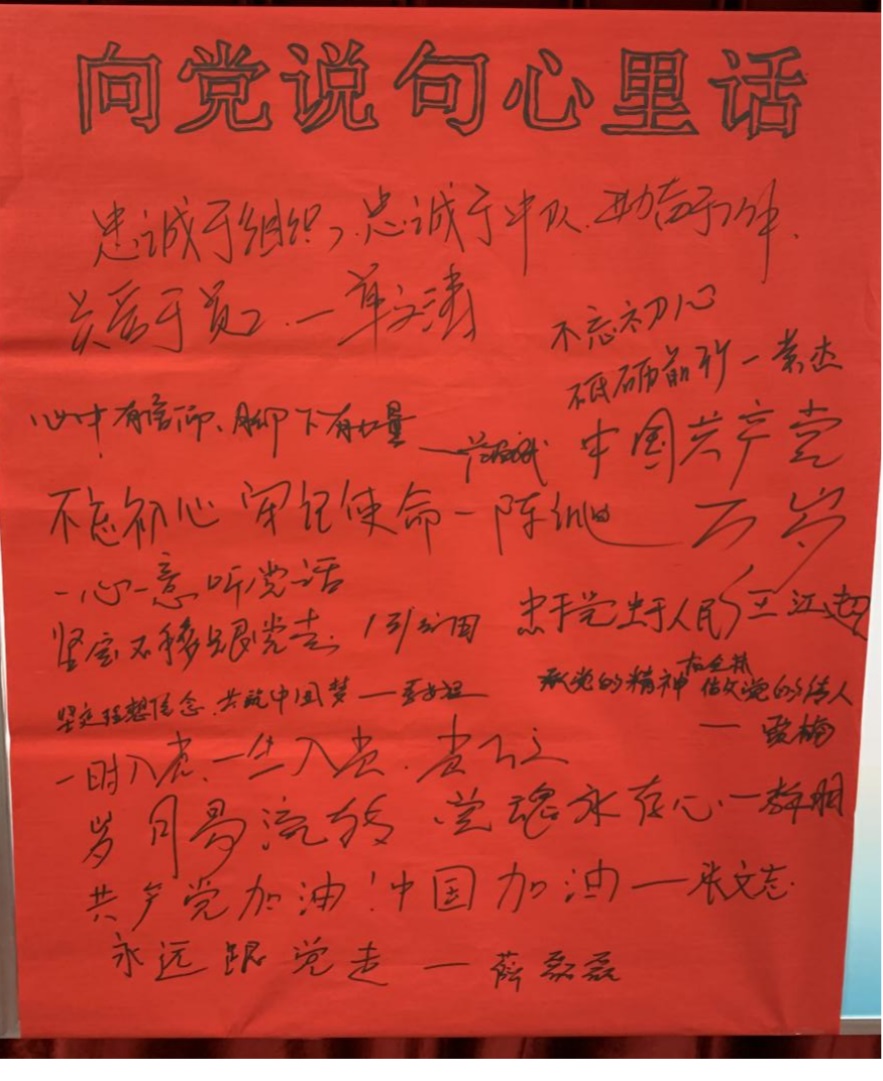 向党说句心里话
忠诚于组织、忠诚于中队.
于员工.一单文涛
不忘初心
砥砺前行一荣杰
心中有信仰、脚下有力量
中国共产党
万岁
不忘初心 牢记使命一陈
一心一意听党话
坚定不移跟党走.
忠于党忠于人民
坚定理想信念.共筑中国梦一
承党的精神 做党的传人
一贾楠
一时入党、一生入党.
岁月易流转 党魂永存心一
共产党加油!中国加油一张文志.
永远跟党走 一 薛磊磊